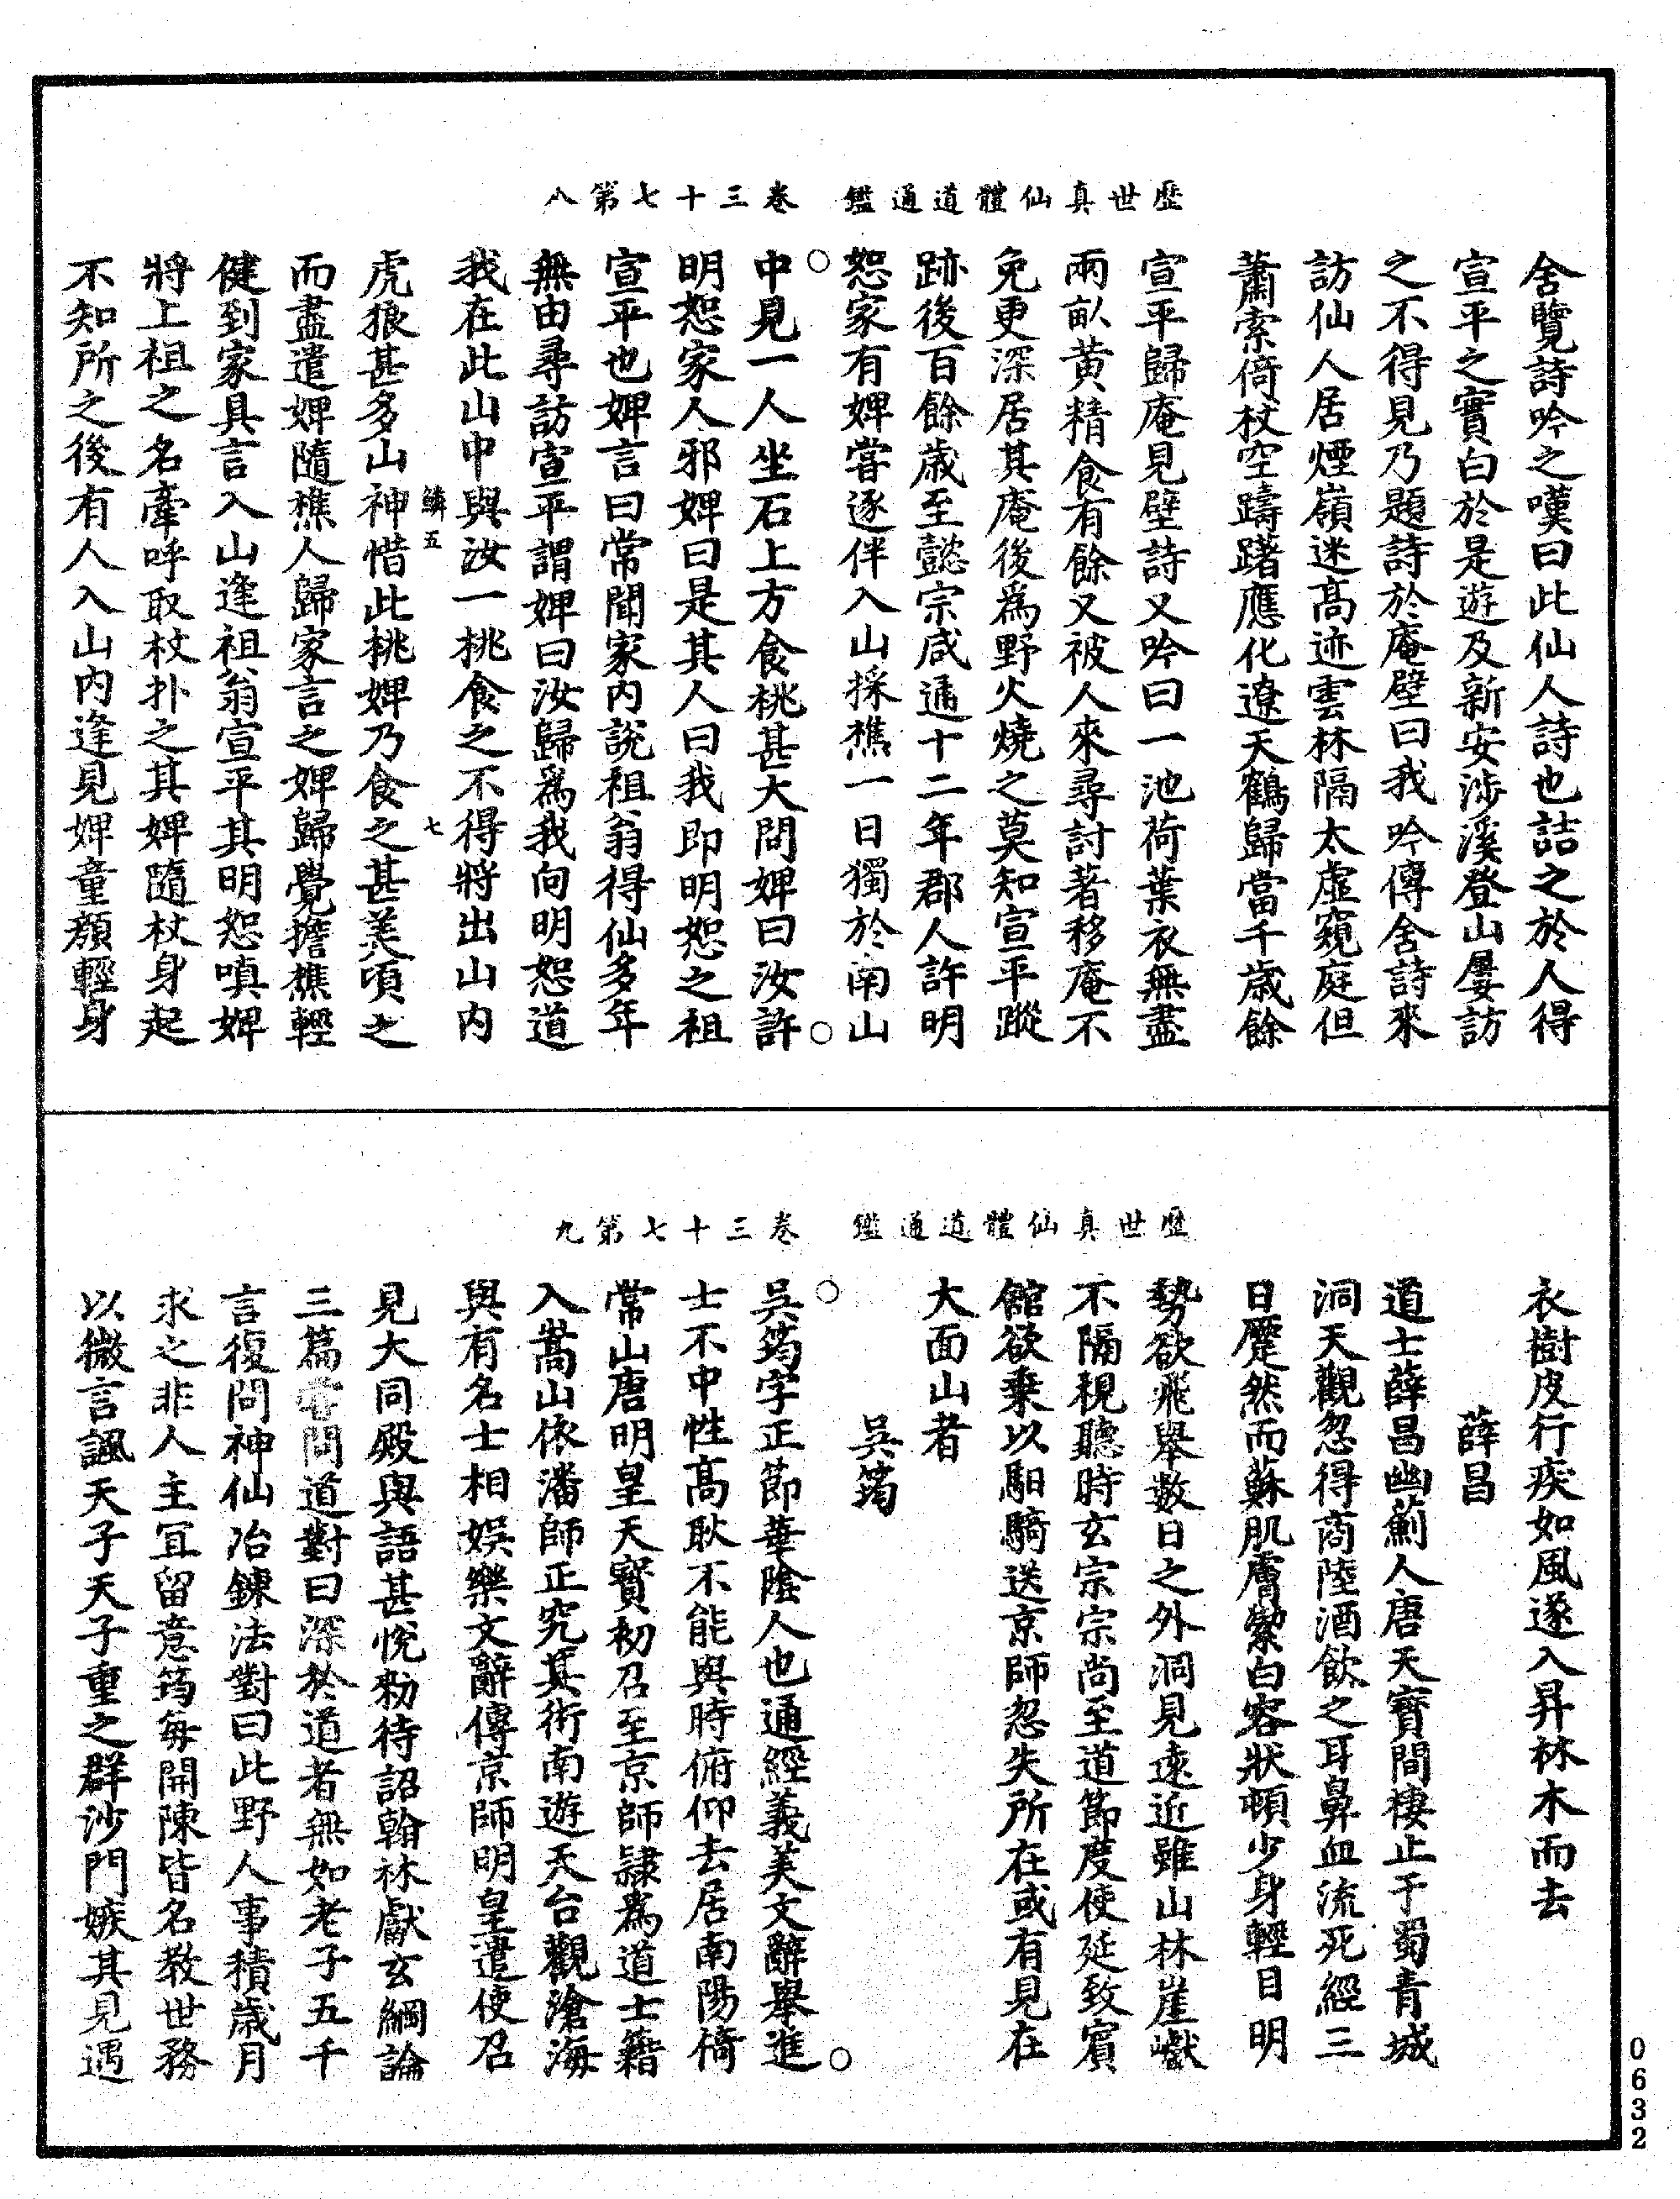 歷世真仙體道通鑑　卷三十七第八
舍覽詩吟之嘆曰此仙人詩也詰之於人得
宣平之實白於是遊及新安涉溪登山屢訪
之不得見乃題詩於庵壁曰我吟傳舍詩來
訪仙人居煙嶺迷高迹雲林隔太虛窺庭但
蕭索倚杖空躊躇應化遼天鶴歸當千歲餘
宣平歸庵見壁詩又吟曰一池荷葉衣無盡
兩畝黃精食有餘又被人來尋討著移庵不
免更深居其庵後為野火燒之莫知宣平蹤
跡後百餘歲至懿宗咸通十二年郡人許明
恕家有婢嘗逐伴入山採樵一日獨於南山
中見一人坐石上方食桃甚大問婢曰汝許
明恕家人邪婢曰是其人曰我即明恕之祖
宣平也婢言曰常聞家內說祖翁得仙多年
無由尋訪宣平謂婢曰汝歸為我向明恕道
我在此山中與汝一桃食之不得將出山內
鱗五　七
虎狼甚多山神惜此桃婢乃食之甚美頃之
而盡遣婢隨樵人歸家言之婢歸覺擔樵輕
健到家具言入山逢祖翁宣平其明恕嗔婢
將上祖之名牽呼取杖扑之其婢隨杖身起
不知所之後有人入山內逢見婢童顏輕身
歷世真仙體道通鑑　卷三十七第九
衣樹皮行疾如風遂入昇林木而去
薛昌
道士薛昌幽薊人唐天寶間棲止于蜀青城
洞天觀忽得商陸酒飲之耳鼻血流死經三
日蹷然而蘇肌膚瑩白容狀頓少身輕目明
勢欲飛舉數日之外洞見遠近雖山林崖巘
不隔視聽時玄宗宗尚至道節度使延致賓
館欲乘以馹騎送京師忽失所在或有見在
大面山者
吳筠
吳筠字正節華陰人也通經義美文辭舉進
士不中性高耿不能與時俯仰去居南陽倚
常山唐明皇天寶初召至京師隸為道士籍
入嵩山依潘師正究其術南遊天台觀滄海
與有名士相娛樂文辭傳京師明皇遣使召
見大同殿與語甚悅勑待詔翰林獻玄綱論
三篇嘗問道對曰深於道者無如老子五千
言復問神仙冶鍊法對曰此野人事積歲月
求之非人主宜留意筠每開陳皆名教世務
以微言諷天子天子重之群沙門嫉其見遇
0632